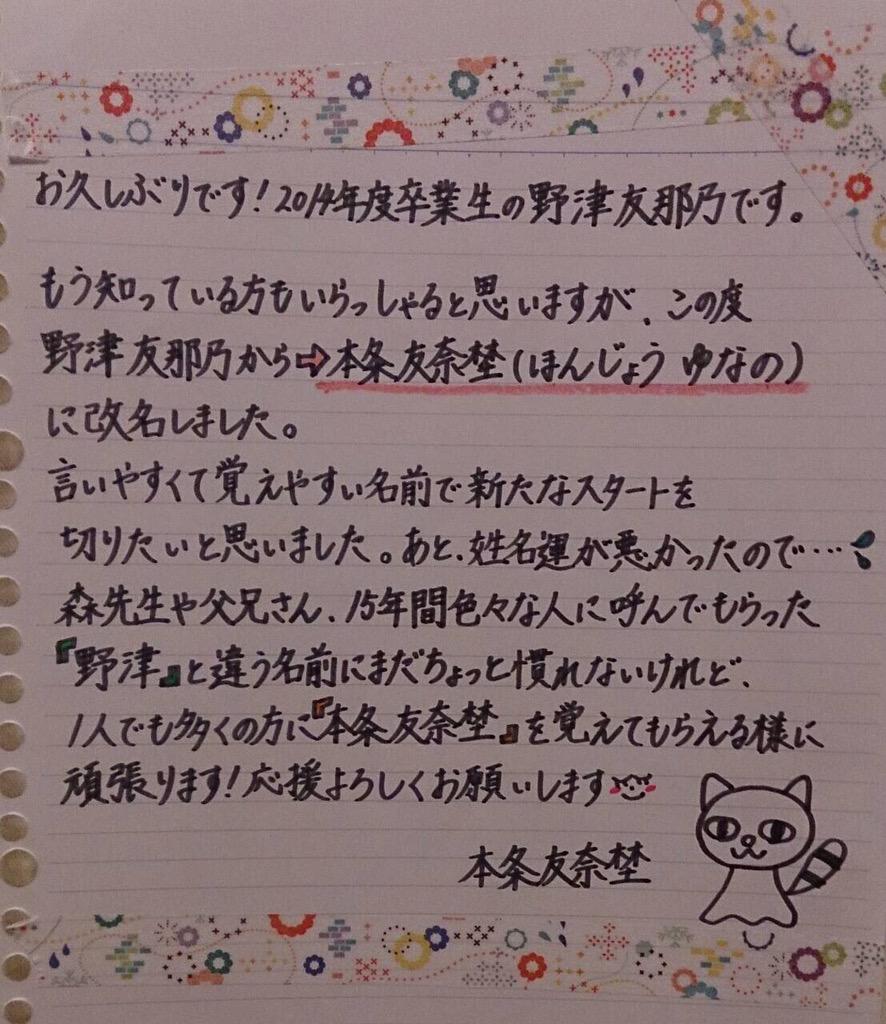 お久しぶりです!2014年度卒業生の野津友那乃です。
もう知っている方もいらっしゃると思いますが、この度
野津友那乃から⇨本条友奈埜(ほんじょう ゆなの)
に改名しました。
言いやすくて覚えやすい名前で新たなスタートを
切りたいと思いました。あと、姓名運が悪かったので…
森先生や父兄さん、15年間色々な人に呼んでもらった
『野津』と違う名前にまだちょっと慣れないけれど、
1人でも多くの方に『本条友奈埜』を覚えてもらえる様に
頑張ります!応援よろしくお願いします
本条友奈埜